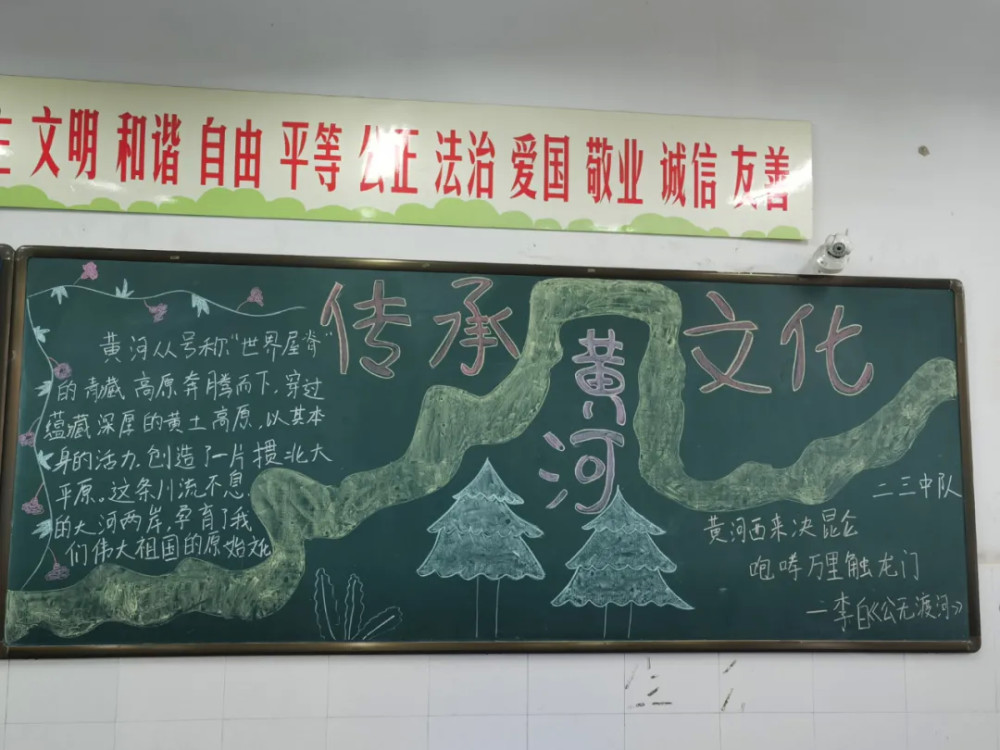 文明 和谐 自由 平等 公正 法治 爱国 敬业 诚信 友善
传承 文化
黄河
黄河从号称“世界屋脊”
的青藏高原奔腾而下,穿过
蕴藏深厚的黄土高原,以其本
身的活力,创造了一片攒北大
平原。这条川流不息
的大河两岸,孕育了我
们伟大祖国的原始文化
二三中队
黄河西来决昆仑
咆哮万里触龙门
—李白《公无渡河》